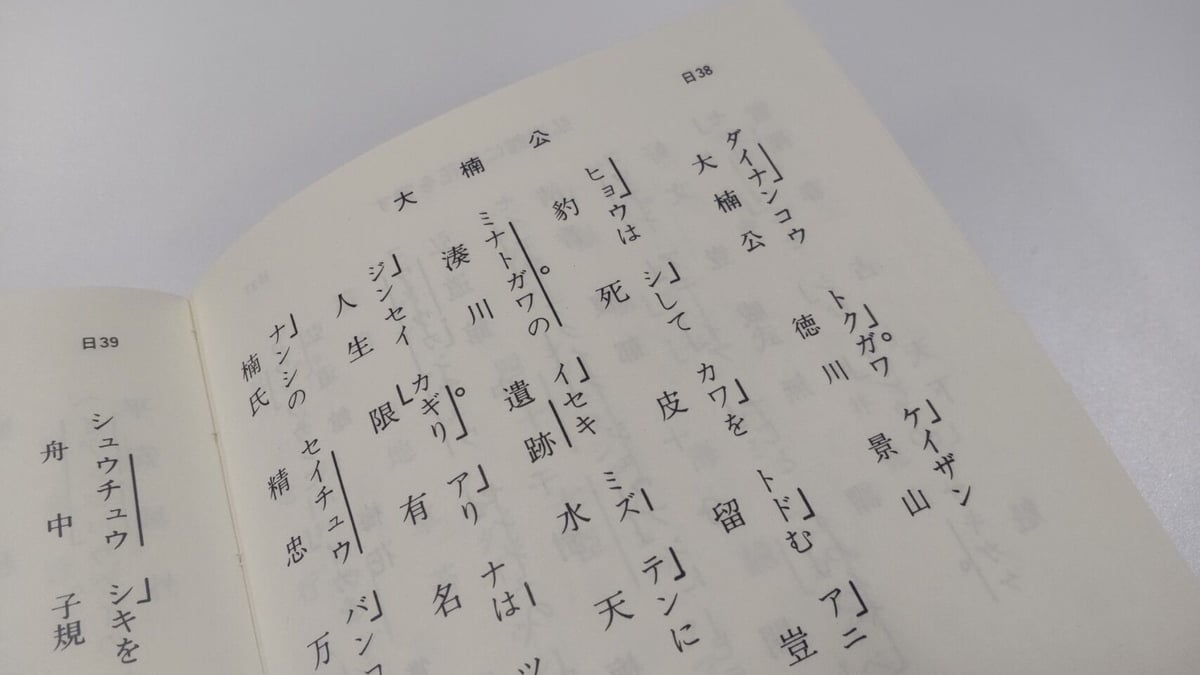 日38
大楠公
ダイナンコウ トクガワ ケイザン
大楠公 徳川 景山
ヒョウは シして カワを トドむ アニ
豹 死 皮 留 豈
ミナトガワの イセキ ミズ テンに
湊川 遺跡 水 天
ジンセイ カギリ アり ナは ツ
人生 限 有 名
ナンシの セイチュウ バンコ
楠氏 精忠 万
日39
シュウチュウ シキを
舟中 子規